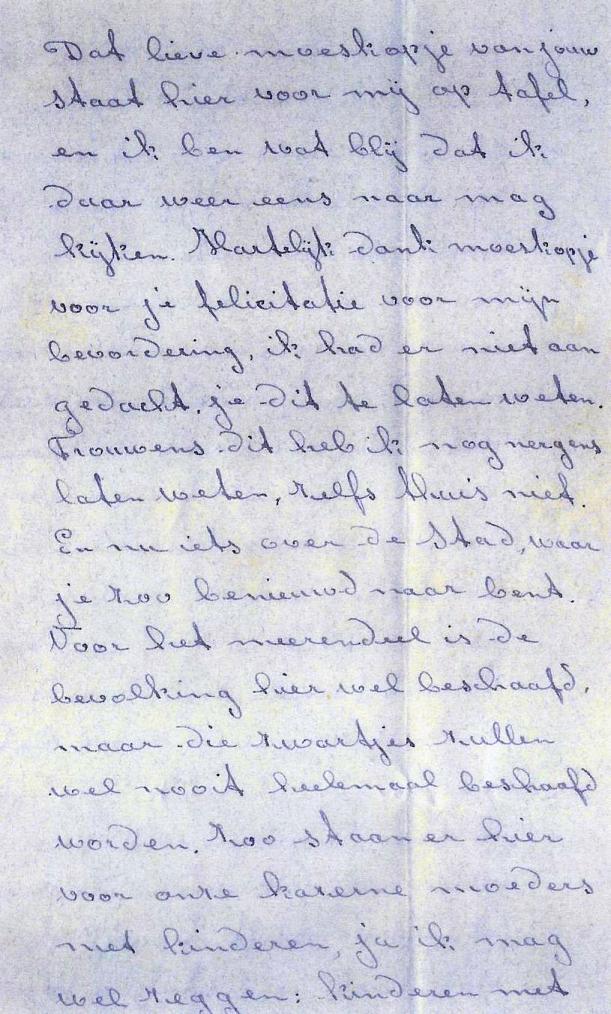 Dat lieve moeskopje van jouw
staat hier voor mij op tafel,
en ik ben wat blij dat ik
daar weer eens naar mag
kijken. Hartelijk dank moeskopje
voor je felicitatie voor mijn
bevordering, ik had er niet aan
gedacht, je dit te laten weten.
Trouwens dit heb ik nog nergens
laten weten, zelfs thuis niet.
En nu iets over de Stad, waar
je zoo benieuwd naar bent.
Voor het meerendeel is de
bevolking hier wel beschaafd,
maar die zwartjes zullen
wel nooit heelemaal beschaafd
worden. Zoo staan er hier
voor onze kazerne moeders
met kinderen, ja ik mag
wel zeggen: kinderen met